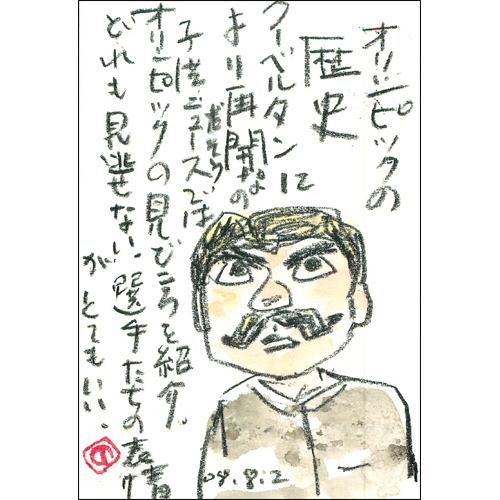 オリンピックの
歴史
クーベルタンに
より再開
だそう
子供ニュースでは
オリンピックの見どころを紹介。
どれも見逃せない、選手たちの表情
がとてもいい。
08.8.2